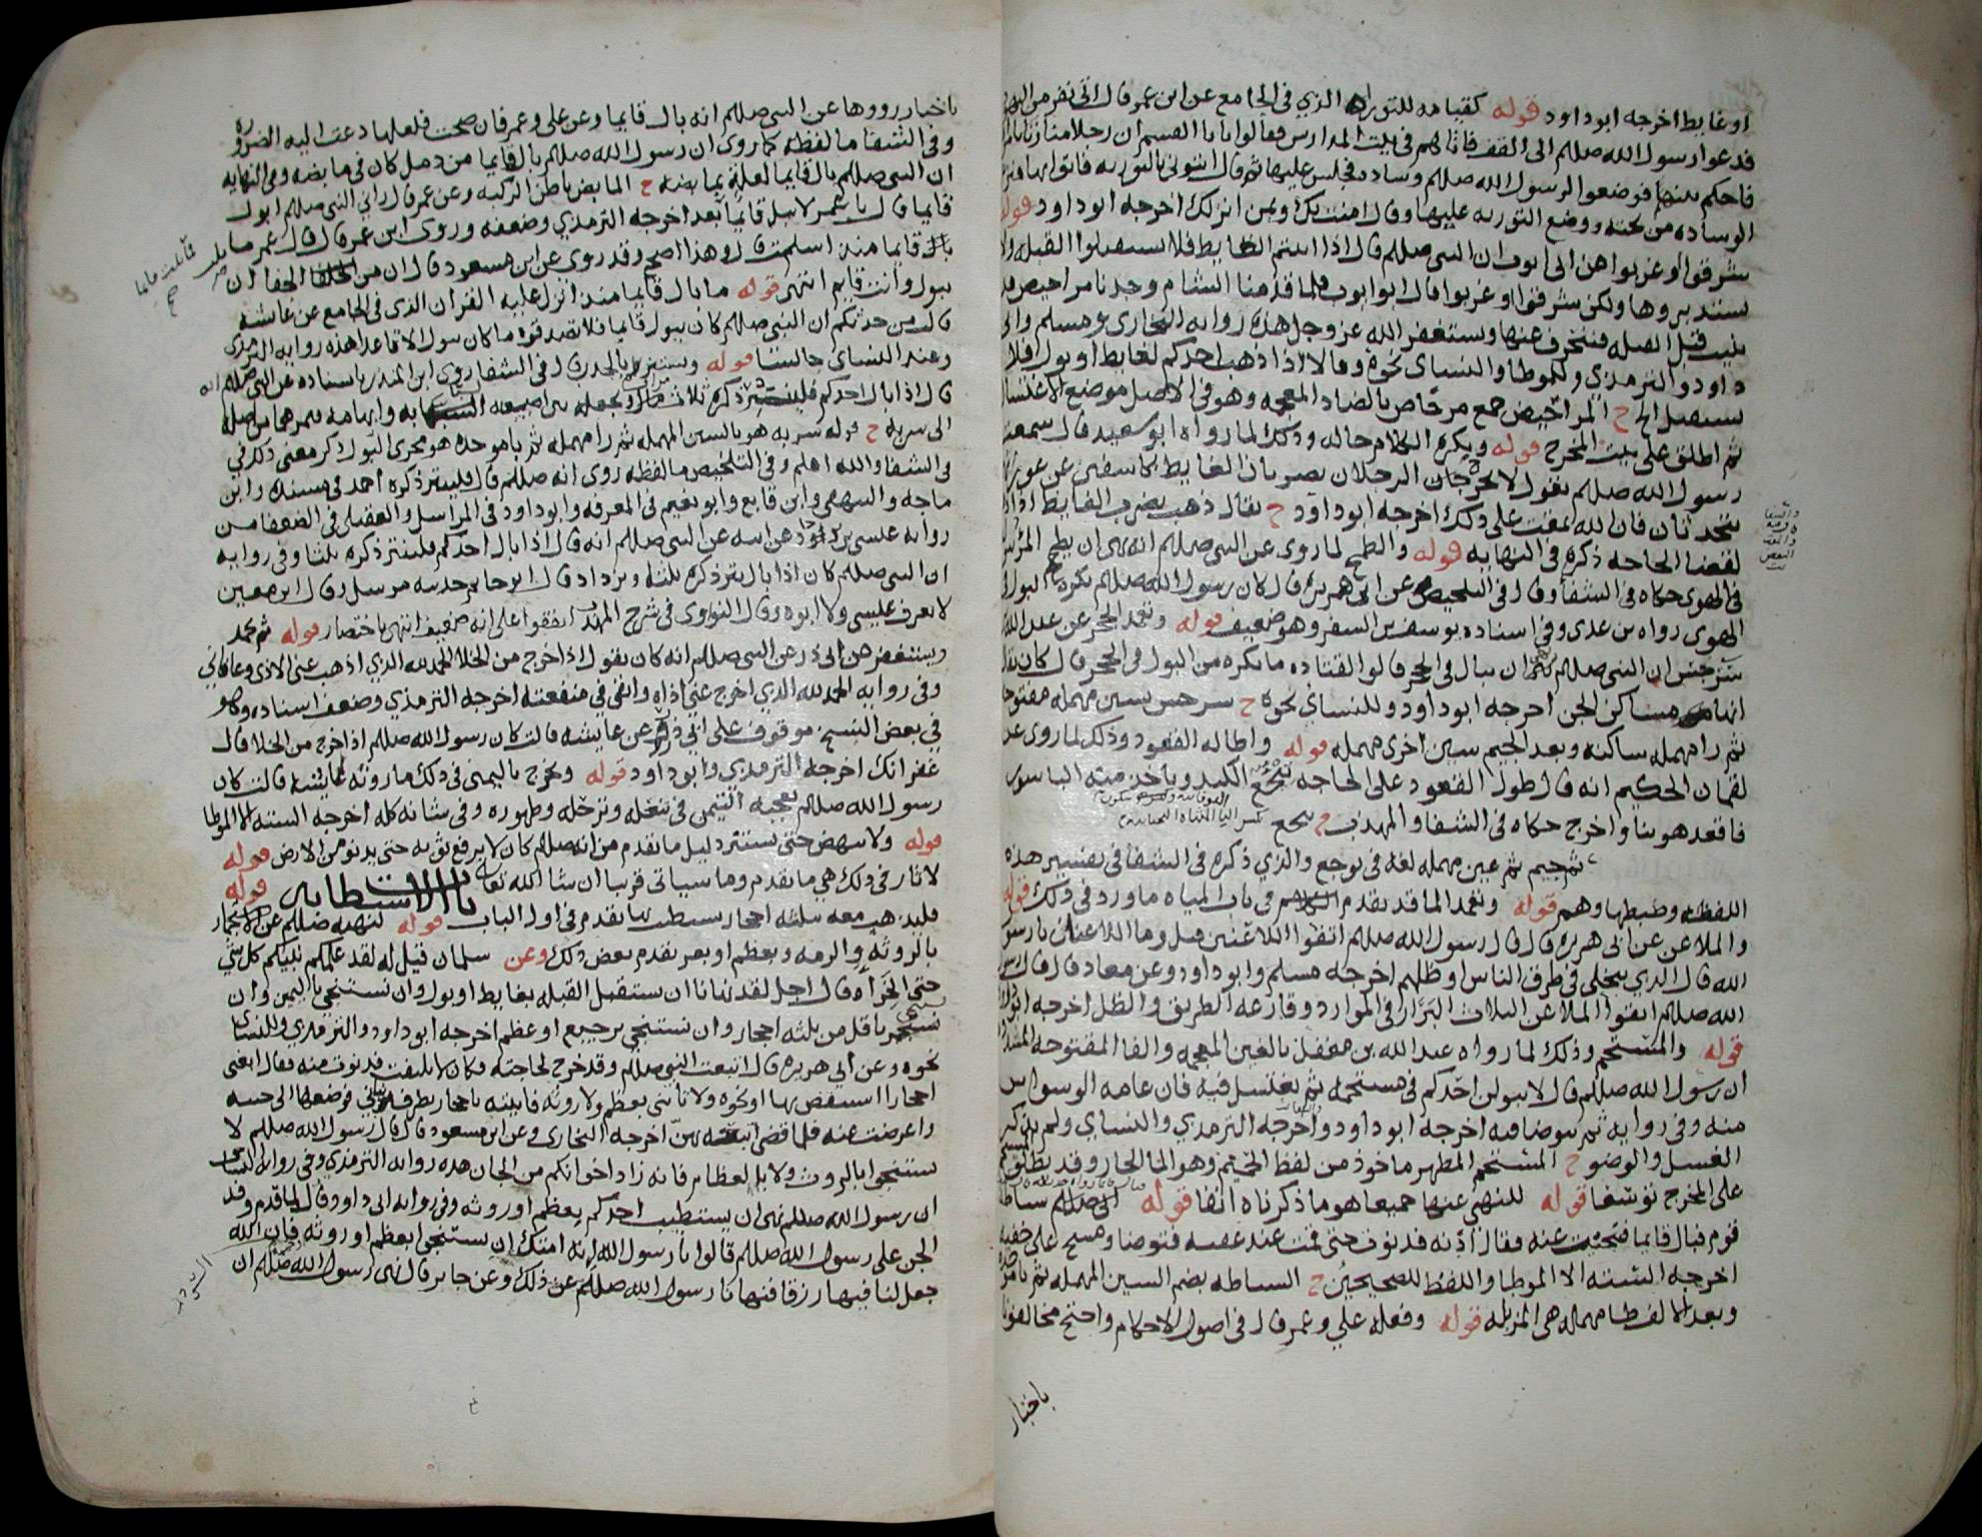 او غايط اخرجه ابو داود قوله كقيامه للتوراه الذي في الجامع عن ابن عمر قال اتى نفر من اليهود
فدعوا رسول الله صللم الى القف فاتاهم في بيت المدارس فقالوا يا ابا القسم ان رجلا منا زنا بامراه
فاحكم بينهم فوضعوا لرسول الله صللم وساده فجلس عليها ثم قال ائتوني بالتوريه فاتوا بها فنزع
الوساده من تحته ووضع التوريه عليها وقال امنت بك وبمن انزلك اخرجه ابو داود قوله
شرقوا او غربوا عن ابي ايوب ان النبي صللم قال اذا اتيتم الغايط فلا تستقبلوا القبله ولا
تستدبروها ولكن شرقوا او غربوا قال ابو ايوب فلما قدمنا الشام وجدنا مراحيض قد
بنيت قبل القبله فننحرف عنها ونستغفر الله عز وجل هذه روايه البخاري ومسلم وابي
داود والترمذي وللموطا والنسائ نحوه وقالا اذا ذهب احدكم لغايط او بول فلا
يستقبل الخ ح المراحيض جمع مرحاض بالضاد المعجمه وهو في الاصل موضع الاغتسال
ثم اطلق على بيت المخرج قوله ويكره الكلام حاله وذلك لما رواه ابو سعيد قال سمعت
رسول الله صللم يقول لا يخرج الرجلان يضربان الغايط كاشفين عن عورتهما
يتحدثان فان الله يمقت على ذلك اخرجه ابو داود ح يقال ذهب يضرب الغايط اذا ذهب
لقضا الحاجه ذكره في النهايه قوله والطمح لما روي عن النبي صللم انه نهى ان يطمح المرء ببوله
في الهوى حكاه في الشفا وقال في التلخيص عن ابي هريره قال كان رسول الله صللم يكره البول في
الهوى رواه بن عدي وفي اسناده يوسف بن السفر وهو ضعيف قوله وتعمد الجحر عن عبد الله بن
سرجس ان النبي صللم نهى ان يبال في الجحر قالوا لقتاده ما يكره من البول في الجحر قال كان يقال
انها مساكن الجن اخرجه ابو داود وللنساي نحوه ح سرجس بسين مهمله مفتوحه
ثم را مهمله ساكنه وبعد الجيم سين اخرى مهمله قوله واطاله القعود وذلك لما روي عن
لقمان الحكيم انه قال طول القعود على الحاجه تيجع الكبد وياخذ منه الباسور
فاقعد هوينا واخرج حكاه في الشفا والمهذب ح تيجع
ثم جيم ثم عين مهمله لغه في توجع والذي ذكره في الشفا في تفسير هذه
اللفظه وضبطها وهم قوله وتعمد الما قد تقدم في باب المياه ما ورد في ذلك قوله
والملاعن عن ابي هريره قال قال رسول الله صللم اتقوا اللاعنين قيل وما اللاعنان يا رسول
الله قال الذي يتخلى في طرق الناس او ظلهم اخرجه مسلم وابو داود وعن معاذ قال قال رسول
الله صللم اتقوا الملاعن الثلاث البَرَاز في الموارد وقارعه الطريق والظل اخرجه ابو داود
قوله والمستحم وذلك لما رواه عبد الله بن مغفل بالغين المعجمه والفا المفتوحه المشدده
ان رسول الله صللم قال لا يبولن احدكم في مستحمه ثم يغتسل فيه فان عامه الوسواس
منه وفي روايه ثم يتوضا فيه اخرجه ابو داود واخرجه الترمذي والنساي ولم يذكر
الغسل والوضوء ح المستحم المطهر ماخوذ من لفظ الحميم وهو الما الحار وقد يطلق
على المخرج توسعا قوله للنهي عنها جميعا هو ما ذكرناه انفا قوله اتى صللم سباطه
قوم فبال قايما فتنحيت عنه فقال ادنه فدنوت حتى قمت عند عقبه فتوضا ومسح على خفيه
اخرجه السته الا الموطا واللفظ للصحيحين ح السباطه بضم السين المهمله ثم با موحده
وبعد الالف طا مهمله هي المزبله قوله وفعله علي وعمر قال في اصول الاحكام واحتج مخالفونا
باخبار
باخبار رووها عن النبي صللم انه بال قايما وعن علي وعمر فان صحت فلعلها دعت اليه الضروره
وفي الشفا ما لفظه كما روي ان رسول الله صللم بال قايما من دمل كان في مابضه وفي النهايه
ان النبي صللم بال قايما لعله بمابضيه ح المابض باطن الركبه وعن عمر قال راني النبي صللم ابول
قايما فقال يا عمر لا تبل قايمًا بعد اخرجه الترمذي وضعفه وروى ابن عمر قال قال عمر ما بلت
قايما منذ اسلمت قال وهذا اصح وقد روي عن ابن مسعود قال ان من الجفا ان
تبول وانت قايم انتهى قوله ما بال قايما منذ انزل عليه القران الذي في الجامع عن عايشه
قالت من حدثكم ان النبي صللم كان يبول قايما فلا تصدقوه ما كان يبول الا قاعدا هذه روايه الترمذي
وعند النسائ جالسا قوله ويستنزه بالحدث قال في الشفا روى ابن المنذر باسناده عن النبي صللم انه
قال اذا بال احدكم فلينتر ذكره ثلاث مرات ويجعله بين اصبعيه السبابه وابهامه فيمرهما من اصله
الى سربه ح قوله سربه هو بالسين المهمله ثم را مهمله ثم با موحده هو مجرى البول ذكر معنى ذلك في
في الشفا والله اعلم وفي التلخيص ما لفظه روي انه صللم قال فلينتر ذكره احمد في مسنده وابن
ماجه والبيهقي وابن قانع وابو نعيم في المعرفه وابو داود في المراسيل والعقيلي في الضعفا من
روايه عيسى بن يزداد عن ابيه عن النبي صللم انه قال اذا بال احدكم فلينتر ذكره ثلثا وفي روايه
ان النبي صللم كان اذا بال ينتر ذكره ثلثا ويزداد قال ابو حاتم حديثه مرسل وقال ابن معين
لا يعرف عيسى ولا ابوه وقال النواوي في شرح المهذب اتفقوا على انه ضعيف انتهى باختصار قوله ثم يحمد
ويستغفر عن ابي ذر عن النبي صللم انه كان يقول اذا خرج من الخلا الحمد لله الذي اذهب عني الاذى وعافاني
وفي روايه الحمد لله الذي اخرج عني اذاه وابقى في منفعته اخرجه الترمذي وضعف اسناده وهو
في بعض النسخ موقوف على ابي ذر عن عايشه قالت كان رسول الله صللم اذا خرج من الخلا قال
غفرانك اخرجه الترمذي وابو داود قوله ويخرج باليمنى في ذلك ما روته عايشه قالت كان
رسول الله صللم يعجبه التيمن في تنعله وترجله وطهوره وفي شانه كله اخرجه السته الا الموطا
قوله ولا ينهض حتى يستتر دليل ما تقدم من انه صللم كان لا يرفع ثوبه حتى يدنو من الارض قوله
لاثار في ذلك هي ما تقدم وما سياتي قريبا ان شا الله تعالى باب الاستطابه قوله
فليذهب معه بثلثه احجار يستطيب بها تقدم في اول الباب قوله لنهيه صللم عن الاستجمار
بالروثه والرمه وبعظم او بعر تقدم بعض ذلك وعن سلمان قيل له لقد علمكم نبيكم كل شي
حتى الخِرَآءه قال اجل لقد نهانا ان نستقبل القبله بغايط او بول وان نستنجي باليمين وان
نستنجي باقل من ثلثه احجار وان نستنجي برجيع او عظم اخرجه ابو داود والترمذي وللنسائ
نحوه وعن ابي هريره قال اتبعت النبي صللم وقد خرج لحاجته وكان لا يلتفت فدنوت منه فقال ابغني
احجارا استنفض بها او نحوه ولا تاتني بعظم ولا روثه فاتيته باحجار بطرف ثوبي فوضعتها الى جنبه
واعرضت عنه فلما قضى اتبعه بهنّ اخرجه البخاري وعن ابن مسعود قال قال رسول الله صللم لا
تستنجوا بالروث ولا بالعظام فانه زاد اخوانكم من الجان هذه روايه الترمذي وفي روايه النسائ
ان رسول الله صللم نهى ان يستطيب احدكم بعظم او روثه وفي روايه ابي داود قال لما قدم وفد
الجن على رسول الله صللم قالوا يا رسول الله انه امتك ان يستنجوا بعظم او روثه فان الله
جعل لنا فيها رزقا فنهانا رسول الله صللم عن ذلك وعن جابر قال نهى رسول الله صللم ان